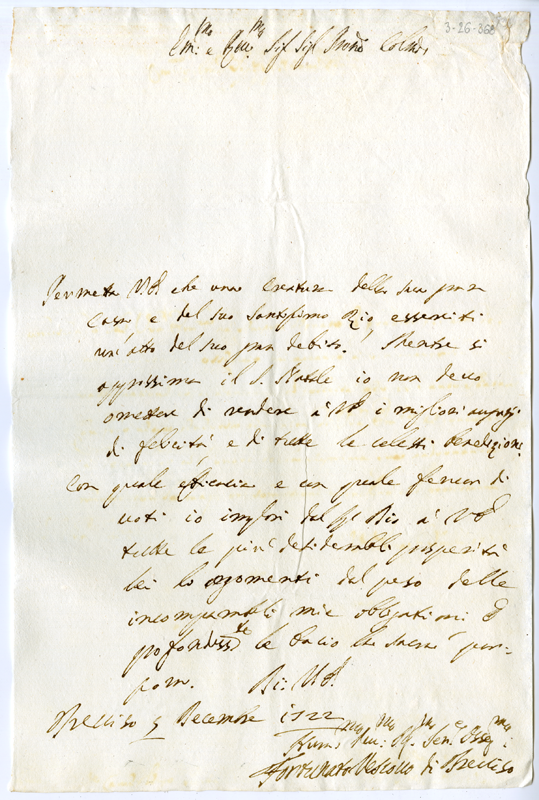 3-26-368
Em:mo e Rmo Sig Sigr Prone Col
Permetta V.E. che una Creatura della sua gran
Casa, e del suo Santissimo Zio, eserciti
un'atto del suo gran debito. Mentre si
approssima il S. Natale io non devo
omettere di rendere à V.E. i migliori auguri
di felicità e di tutte le celesti benedizioni
Con quale efficacia e con quale fervor di
voti io implori dal Sr Dio à V.E.
tutte le più desiderabili prosperità
lei lo argomenti dal peso delle
incomparabili mie obligationi E
profondisste le bacio la sacra por-
pora. Di: V.E.
5 Decembre 1722
Humo Serre Ossmo
Fortunato Vescovo di